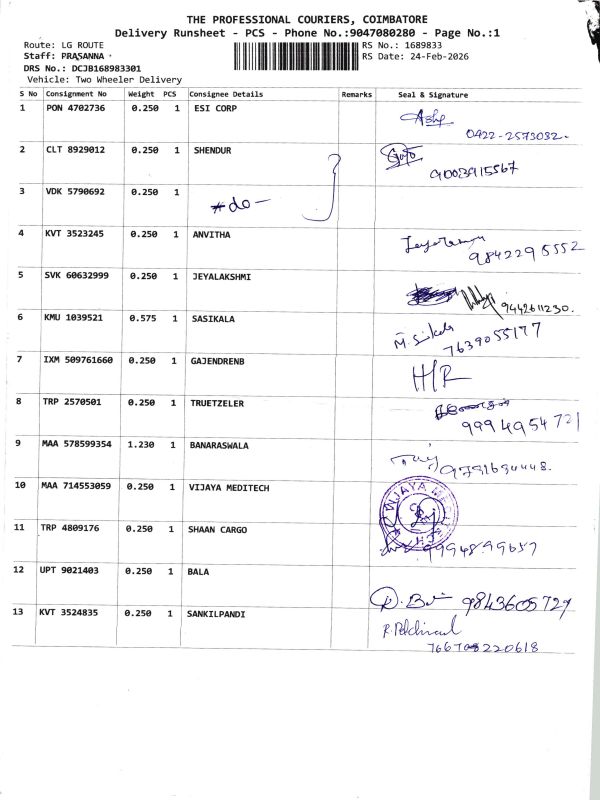 THE PROFESSIONAL COURIERS, COIMBATORE
Delivery Runsheet - PCS - Phone No.:9047080280 - Page No.:1
Route: LG ROUTE RS No.: 1689833
Staff: PRASANNA RS Date: 24-Feb-2026
DRS No.: DCJB168983301
Vehicle: Two Wheeler Delivery
S No Consignment No Weight PCS Consignee Details Remarks Seal & Signature
1 PON 4702736 0.250 1 ESI CORP
0422-2573032.
2 CLT 8929012 0.250 1 SHENDUR
9003915567
3 VDK 5790692 0.250 1
#do-
4 KVT 3523245 0.250 1 ANVITHA
9842295552
5 SVK 60632999 0.250 1 JEYALAKSHMI
9442611230.
6 KMU 1039521 0.575 1 SASIKALA
7639055177
7 IXM 509761660 0.250 1 GAJENDRENB
H/R
8 TRP 2570501 0.250 1 TRUETZELER
9994954721
9 MAA 578599354 1.230 1 BANARASWALA
10 MAA 714553059 0.250 1 VIJAYA MEDITECH
VIJAYA MEDITECH
11 TRP 4809176 0.250 1 SHAAN CARGO
9994899657
12 UPT 9021403 0.250 1 BALA
9843605727
13 KVT 3524835 0.250 1 SANKILPANDI